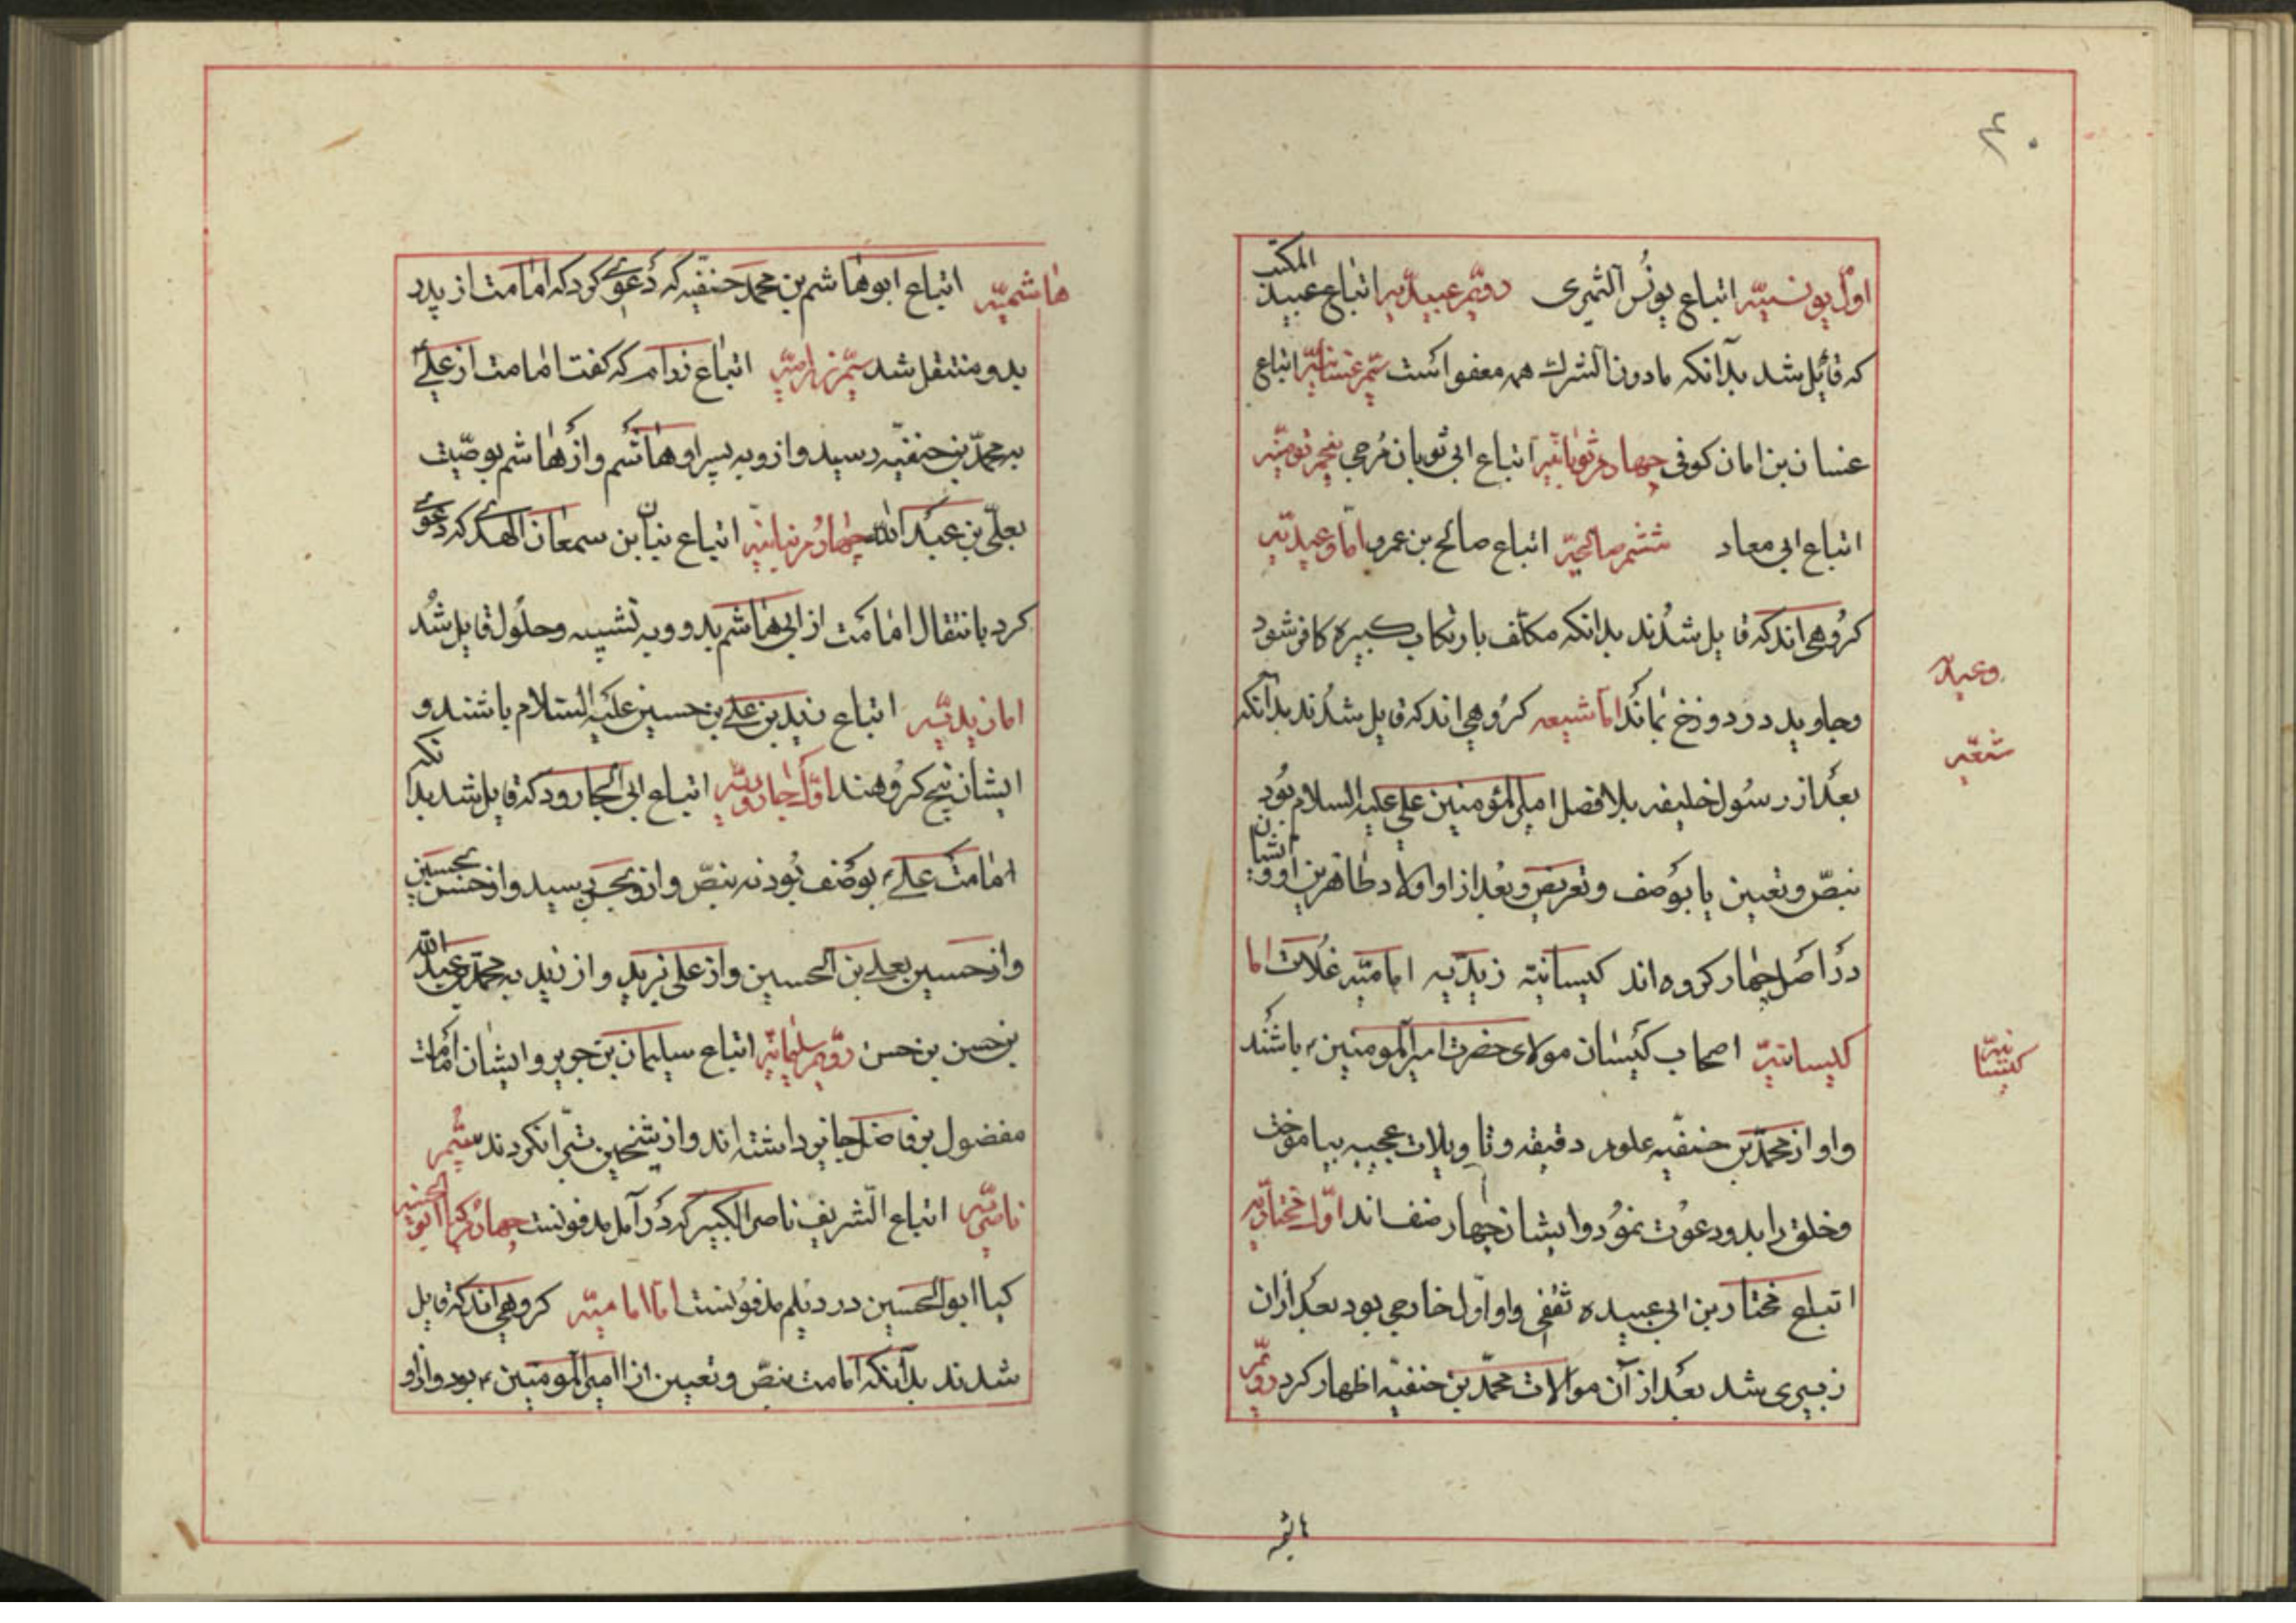 اوّل یونسیّه اتباع یونُس النمیری دویّم عبیدیّه اتباع عبید المکتب
که قائل شد بدانکه مادون الشرک همه معفو است سیّم غسانیّه اتباع
غسان بن امان کوفی چهارم ثوبانیّه اتباع ابی ثوبان مُرجی پنجم تومنیّه
اتباع ابی معاد ششم صالحیّه اتباع صالح بن عمرو امّا وعیدیّه
کرُوهی اند که قایل شدُند بدانکه مکلّف بارتکاب کبیره کافر شود
وجاوید در دوزخ بمانَد امّا شیعه کرُوهی اند که قایل شدُند بدانکه
بعدَاز رسُول خلیفه بلا فصل امیرالمؤمنین علی علیه السلام بُود
بنصّ وتعیین یا بوَصف وتعریض وبعُد از او اولاد طاهرین او وایشان
درَاصَل چهار کروه اند کیسانیّه زیدّیه امامیّه غُلات امّا
کیسانیّه اصحاب کَیسان مولای حضرت امیرالمومنین ؑ باشنُد
واو از محمّد بن حنفیّه علوم دقیقه وتاویلات عجیبه بیاموخت
وخلق را بدو دعوُت نموُد وایشان چهار صنف اند اوّل مختاریّه
اتباع مختار بن ابی عبیده ثقفی واو اوّل خارجی بود بعدَ ازان
زبیری شد بعدَ از آن موالات محمّد بن حنفیّه اظهار کرد دویّم
وعید
شیعه
کیسانیّه
هاشمیّه اتباع ابوهاشم بن محمد حنفیّه که دَعویٰ کرد که امامت از پدر
بدو منتقل شد سیّم رزامیّه اتباع رزام که کفت امامت از علی
به محمّد بن حنفیّه رسید واز وبه پسر او هاشم واز هاشم بوصیّت
بعلّی بن عبدَالله چهارُم بنانیّه اتباع بنان بن سمعان الهندی که دعویٰ
کرد بانتقال امامَت از ابی هاشم بدو وبه تشبیه وحلُول قایل شدُ
اما زیدیّه اتباع زید بن علی بن حسین علیَه السّلام باشند و
ایشان پنج کروُهند اوّل جارودیّه اتباع ابی الجارود که قایل شد بدانکه
امامت علی ؑ بوصَف بُود نه بنصّ واز وبحسن رسید واز حسن بحسین
واز حسین بعلی بن الحسین واز علی بزید واز زید به محمّد بن عبدالله
بن حسن بن حسن دوّیم سلیمانیّه اتباع سلیمان بن جویر وایشان امامَت
مفضول بر فاضل جایز داشته اند واز شیخین تبّرا نکردند سیُّم
ناصریّه اتباع الشّریف ناصر الکبیر که درَ آمل مدفونست چهارُم
کیا ابوالحسین در دیلم مدفوُنست امّا امامیّه کروهی اند که قایل
شدند بدانکه امامت بنصّ وتعیین از امیرالمومنین ؑ بود واز او